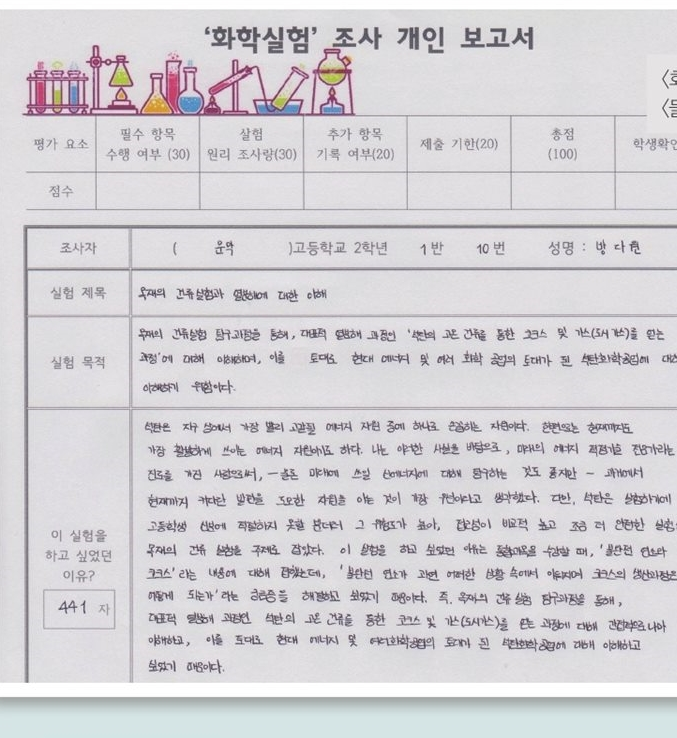 '화학실험' 조사 개인 보고서
평가 요소
필수 항목
수행 여부 (30)
실험
원리 조사량(30)
추가 항목
기록 여부(20)
제출 기한(20)
총점
(100)
점수
조사자
( 운막 )고등학교 2학년 1 반 10 번 성명 : 방 다 현
실험 제목
목재의 건류실험과 열분해에 대한 이해
실험 목적
목재의 건류실험 탐구과정을 통해, 대표적 열분해 과정인 '석탄의 고온 건류를 통한 코크스 및 가스(도시가스)를 얻는
과정'에 대해 이해하며, 이를 토대로 현대 에너지 및 여러 화학 공업의 토대가 된 석탄화학공업에
이해하기 위함이다.
이 실험을
하고 싶었던
이유?
441 자
석탄은 지구 상에서 가장 빨리 고갈될 에너지 자원 중에 하나로 손꼽히는 자원이다. 한편으로는 현재까지도
가장 활발하게 쓰이는 에너지 자원이기도 하다. 나는 이러한 사실을 바탕으로, 미래의 에너지
진로를 가진 사람으로서, 미래에 쓰일 신에너지에 대해 탐구하는 것도 좋지만 ~ 과거에서
현재까지 커다란 발전을 초래한 자원을 아는 것이 가장 우선이라고 생각했다. 다만, 석탄은 실험하기에
고등학생 신분에 적절하지 못할 뿐더러 그 위험도가 높아, 접근성이 비교적 높고 조금 더 안전한
목재의 건류 실험을 주제로 잡았다. 이 실험을 하고 싶었던 이유는 통합과학을 수강할 때, '불완전 연소와
코크스'라는 내용에 대해 접했는데, '불완전 연소가 과연 어떠한 상황 속에서 이뤄지며 코크스의 생산과정은
어떻게 되는가'라는 궁금증을 해결하고 싶었기 때문이다. 즉, 목재의 건류 실험 탐구과정을 통해,
대표적 열분해 과정인 석탄의 고온 건류를 통한 코크스 및 가스(도시가스)를 얻는 과정에 대해 간접적으로나마
이해하고, 이를 토대로 현대 에너지 및 여러화학공업의 토대가 된 석탄화학공업에 대해 이해하고
싶었기 때문이다.